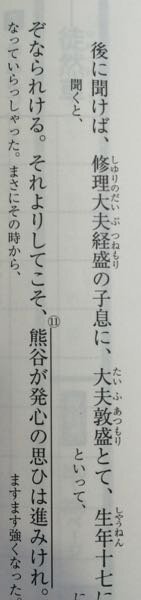 しゆりのだいぶつねもり
たいふあつもり
しやうねん
後に聞けば、修理大夫経盛の子息に、大夫敦盛とて、生年十七に
聞くと、
といって、
⑪
ぞなられける。それよりしてこそ、熊谷が発心の思ひは進みけれ。
なっていらっしゃった。まさにその時から、
ますます強くなった。